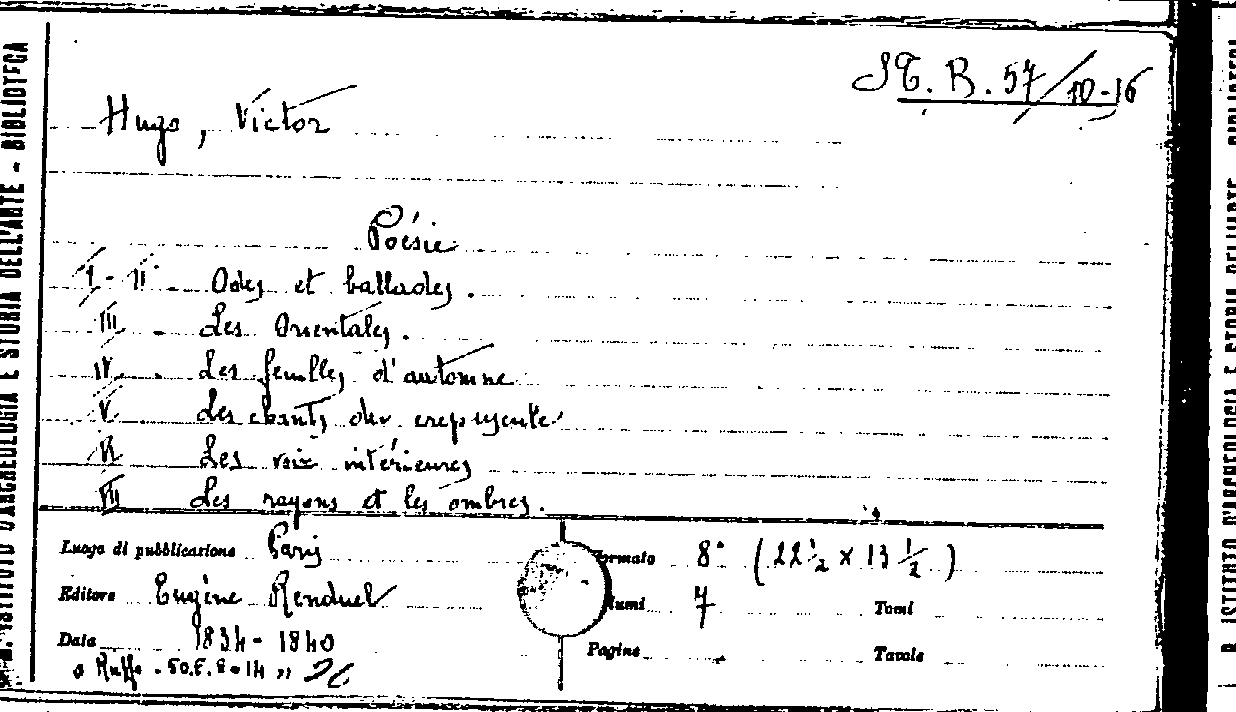 ST. R. 57/10-16
Hugo, Victor
Poésie
I-II - Odes et ballades.
III - Les Orientales.
IV - Les feuilles d'automne
V - Les chants du crepuscule
VI - Les voix intérieures
VII Les rayons et les ombres.
Luogo di pubblicazione Paris
Formato 8° (22 ½ x 13 ½)
Editore Eugène Renduel
Volumi 7 Tomi
Data 1834-1840
Pagine Tavole
R. ISTITUTO D'ARCHEOLOGIA E STORIA DELL'ARTE - BIBLIOTECA